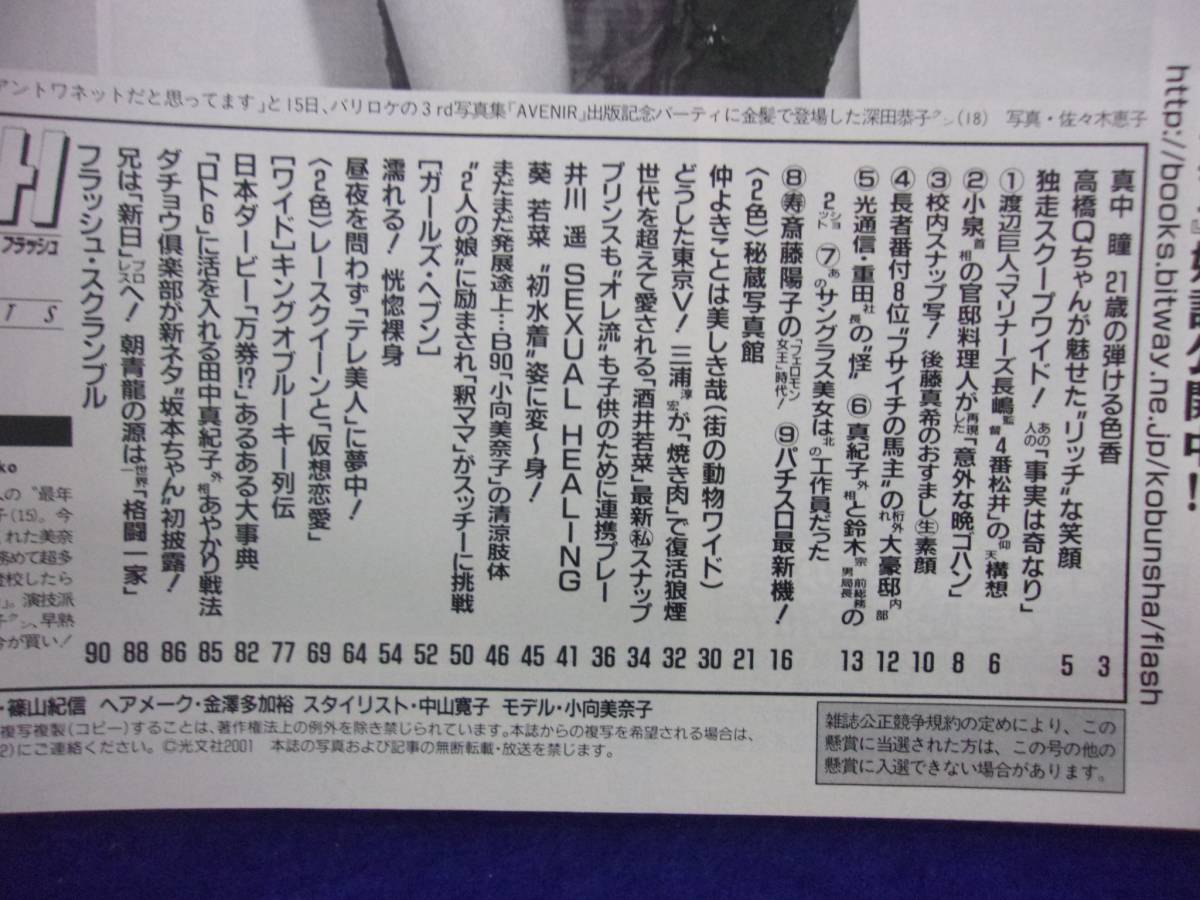 アントワネットだと思ってます」と15日、パリロケの3rd写真集「AVENIR」出版記念パーティに金髪で登場した深田恭子クン(18) 写真・佐々木恵子
http://books.bitway.ne.jp/kobunsha/flash
公開中!!
H
フラッシュ
TS
真中 瞳 21歳の弾ける色香 3
高橋Qちゃんが魅せた"リッチ"な笑顔 5
独走スクープワイド! あの人の「事実は奇なり」
①渡辺巨人"マリナーズ長嶋監督4番松井"の仰天構想 6
②小泉首相の官邸料理人が再現した「意外な晩ゴハン」 8
③校内スナップ写! 後藤真希のおすまし㊤素顔 10
④長者番付8位"フサイチの馬主"の桁外れ大豪邸内部 12
⑤光通信・重田社長の"怪" ⑥真紀子外相と鈴木宗男前総務局長の 13
2ショット ⑦あのサングラス美女は北の工作員だった
⑧寿斎藤陽子の「フェロモン女王」時代! ⑨パチスロ最新機! 16
〈2色〉秘蔵写真館 21
仲よきことは美しき哉(街の動物ワイド) 30
どうした東京V! 三浦淳宏が「焼き肉」で復活狼煙 32
世代を超えて愛される「酒井若菜」最新㊙スナップ 34
プリンスも"オレ流"も子供のために連携プレー 36
井川 遥 SEXUAL HEALING 41
葵 若菜 "初水着"姿に変〜身! 45
まだまだ発展途上…B90「小向美奈子」の清涼肢体 46
"2人の娘"に励まされ「釈ママ」がスッチーに挑戦 50
[ガールズ・ヘブン] 52
濡れる! 恍惚裸身 54
昼夜を問わず「テレ美人」に夢中! 64
〈2色〉レースクイーンと「仮想恋愛」 69
[ワイド]キングオブルーキー列伝 77
日本ダービー「万券!?」あるある大事典 82
「ロト6」に活を入れる田中真紀子外相あやかり戦法 85
ダチョウ倶楽部が新ネタ"坂本ちゃん"初披露! 86
兄は「新日」プロレスへ! 朝青龍の源は世界一「格闘一家」 88
フラッシュ・スクランブル 90
ko
人の"最年
子(15)。今
くれた美奈
務めて超多
登校したら
」。演技派
子クン、早熟
今が買い!
・篠山紀信 ヘアメーク・金澤多加裕 スタイリスト・中山寛子 モデル・小向美奈子
複写複製(コピー)することは、著作権法上の例外を除き禁じられています。本誌からの複写を希望される場合は、
2)にご連絡ください。©光文社2001 本誌の写真および記事の無断転載・放送を禁じます。
雑誌公正競争規約の定めにより、この
懸賞に当選された方は、この号の他の
懸賞に入選できない場合があります。